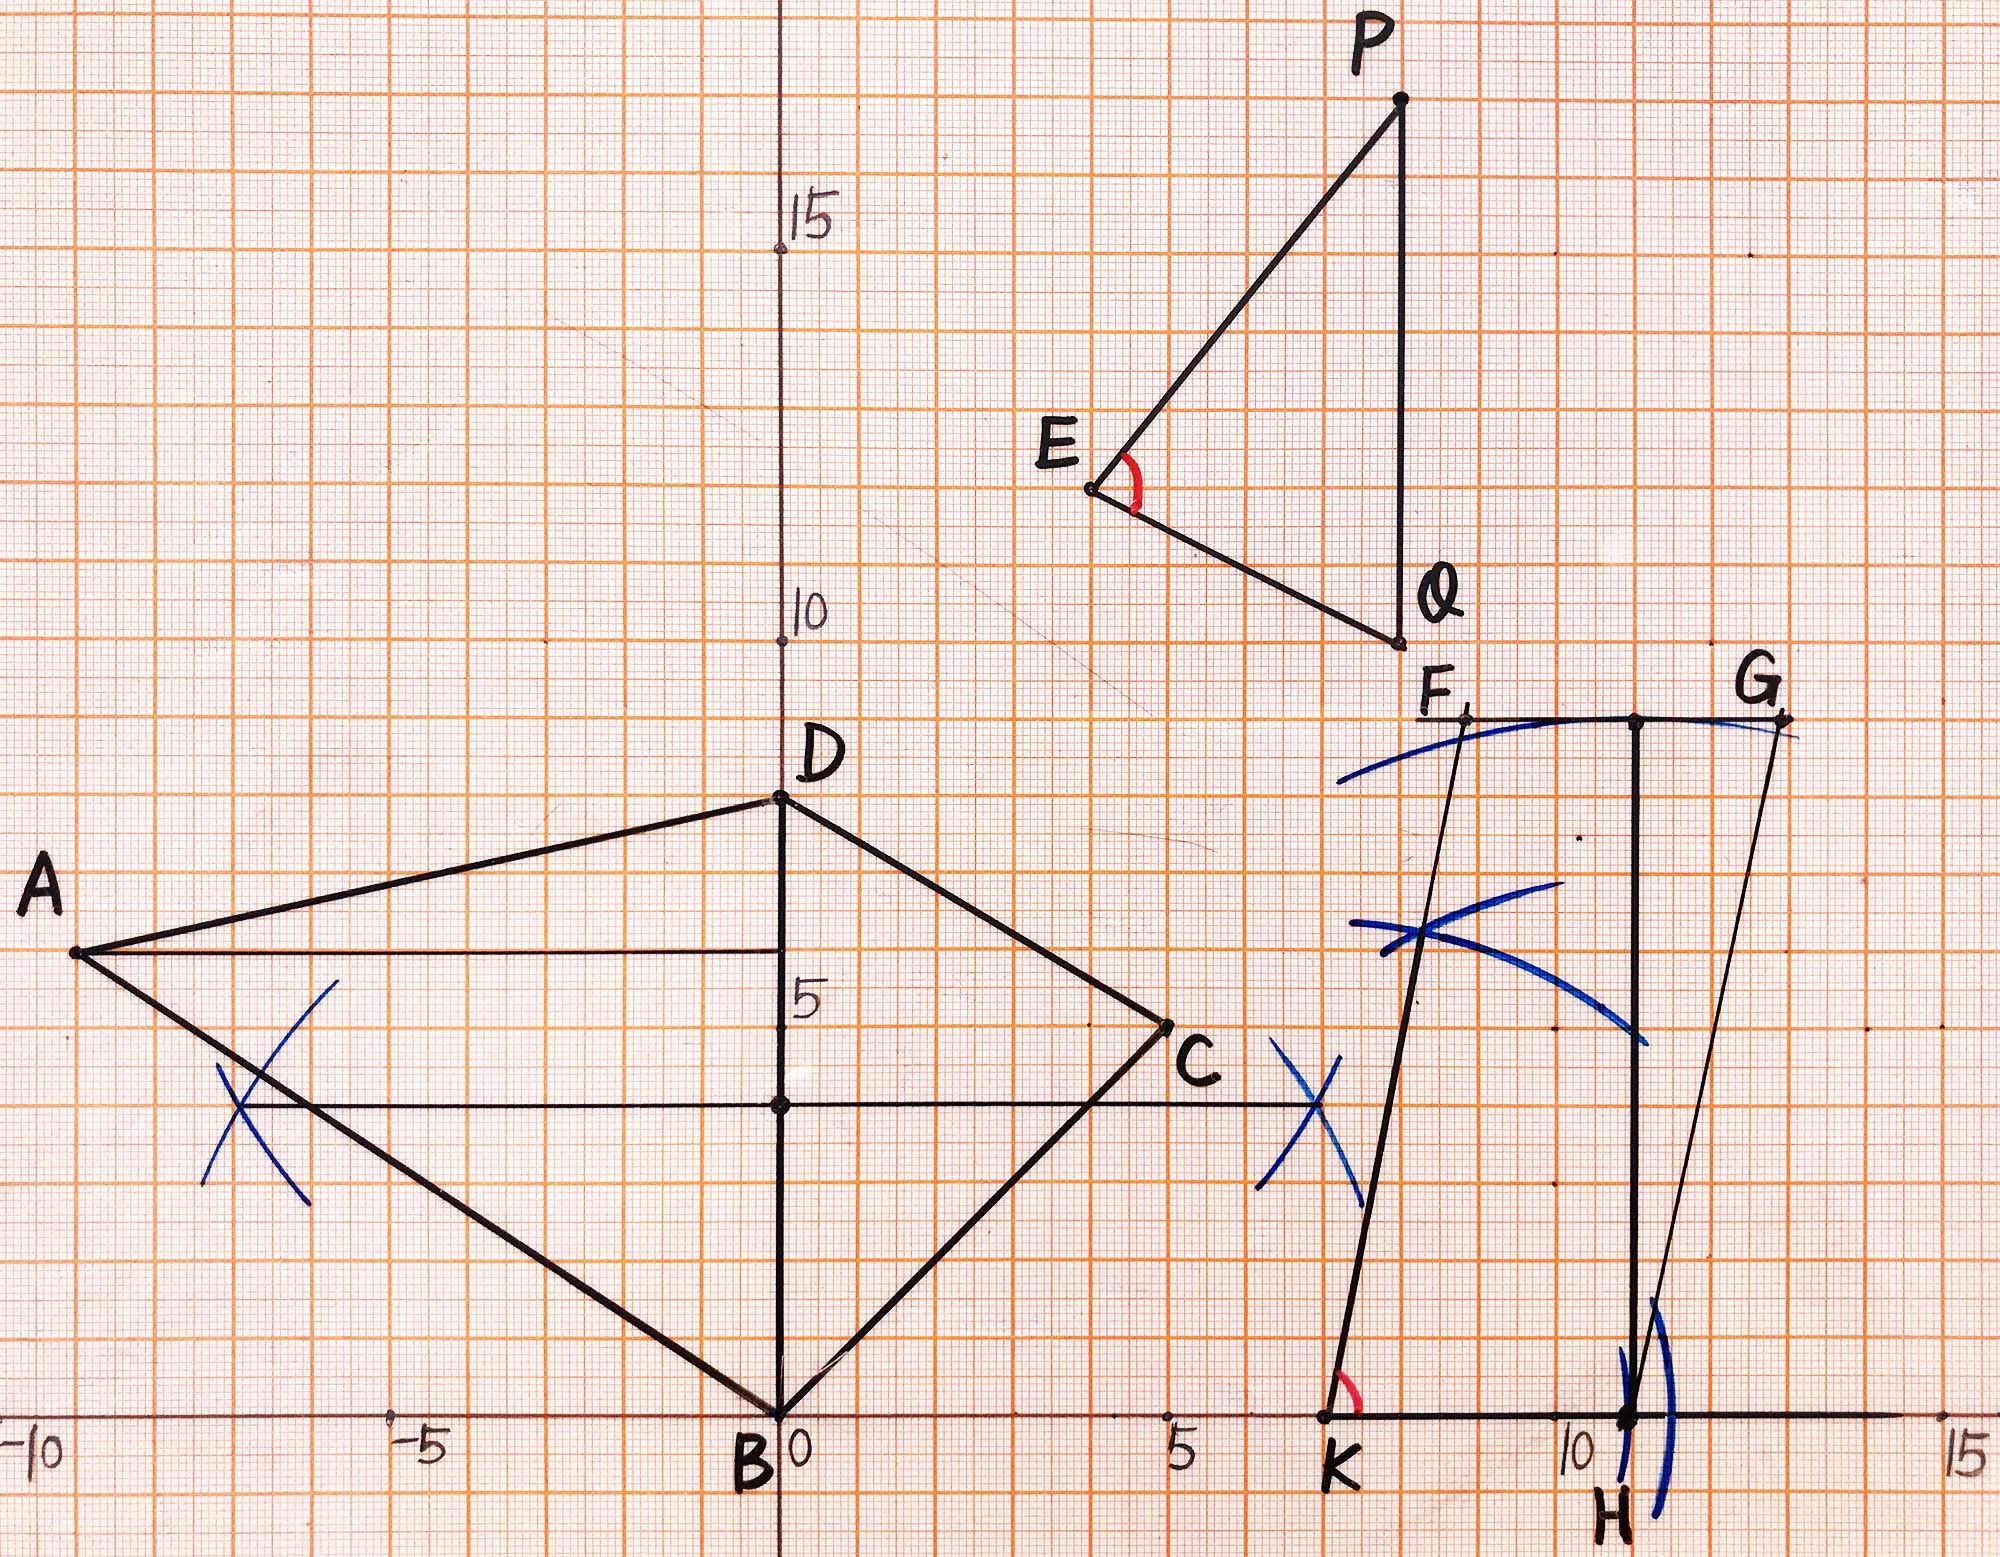 P
15
E
10
Q
F
G
D
A
5
C
-10
-5
B
0
K
5
10
H
15